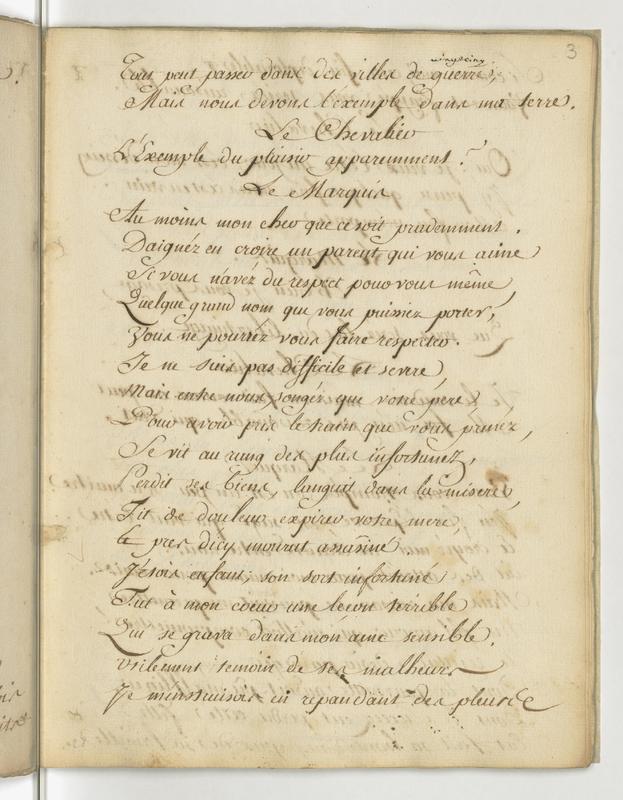 3
Tout peut passer dans des villes de guerre,
Mais nous devons l'exemple dans ma terre.
Le Chevalier
L'Exemple du plaisir apparemment ?
Le Marquis
Au moins mon cher que ce soit prudemment.
Daignéz en croire un parent qui vous aime
Si vous n'avéz du respect pour vous même,
Quelque grand nom que vous puissiez porter,
Vous ne pourréz vous faire respecter.
Je ne suis pas difficile et severe,
Mais entre nous, songéz que votre pere,
Pour avoir pris le train que vous prenéz,
Se vit au rang des plus infortunez,
Perdit ses biens, languit dans la misere,
Fit de douleur expirer votre mere,
Et pres d'icy mourut assassiné
J'étois enfant; son sort infortuné
Fut à mon coeur une leçon terrible
Qui se grava dans mon ame sensible.
Utilement temoin de ses malheurs
Je m'instruisois en repandant des pleurs